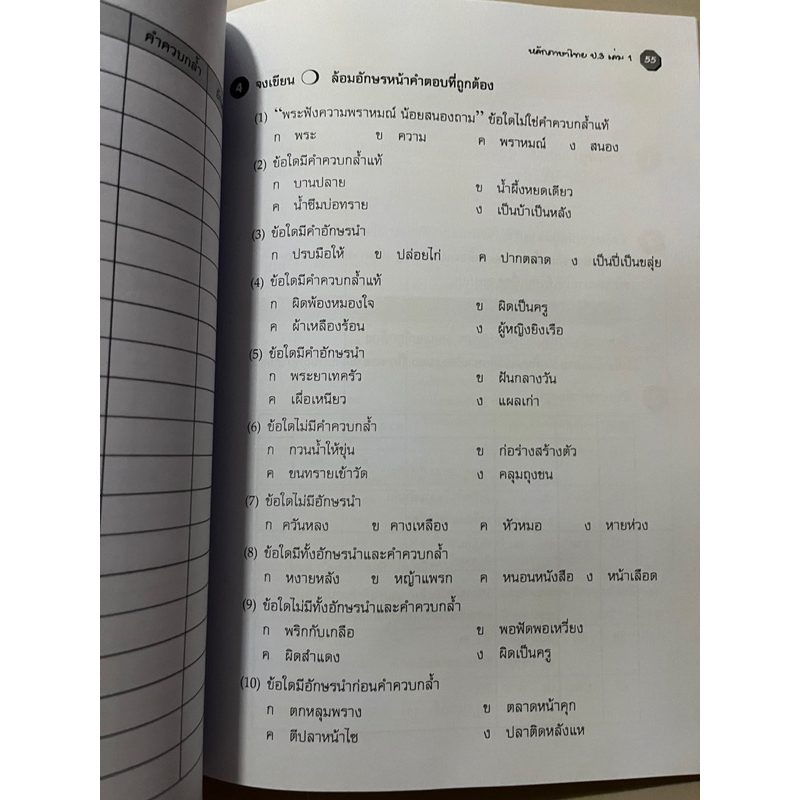 คำควบกล้ำ
หลักภาษาไทย ป.3 เล่ม 1 55
4 จงเขียน ล้อมอักษรหน้าคำตอบที่ถูกต้อง
(1) “พระฟังความพราหมณ์ น้อยสนองถาม” ข้อใดไม่ใช่คำควบกล้ำแท้
ก พระ ข ความ ค พราหมณ์ ง สนอง
(2) ข้อใดมีคำควบกล้ำแท้
ก บานปลาย ข น้ำผึ้งหยดเดียว
ค น้ำซึมบ่อทราย ง เป็นบ้าเป็นหลัง
(3) ข้อใดมีคำอักษรนำ
ก ปรบมือให้ ข ปล่อยไก่ ค ปากตลาด ง เป็นปี่เป็นขลุ่ย
(4) ข้อใดมีคำควบกล้ำแท้
ก ผิดพ้องหมองใจ ข ผิดเป็นครู
ค ผ้าเหลืองร้อน ง ผู้หญิงยิงเรือ
(5) ข้อใดมีคำอักษรนำ
ก พระยาเทครัว ข ฝันกลางวัน
ค เผื่อเหนียว ง แผลเก่า
(6) ข้อใดไม่มีคำควบกล้ำ
ก กวนน้ำให้ขุ่น ข ก่อร่างสร้างตัว
ค ขนทรายเข้าวัด ง คลุมถุงชน
(7) ข้อใดไม่มีอักษรนำ
ก ควันหลง ข คางเหลือง ค หัวหมอ ง หายห่วง
(8) ข้อใดมีทั้งอักษรนำและคำควบกล้ำ
ก หงายหลัง ข หญ้าแพรก ค หนอนหนังสือ ง หน้าเลือด
(9) ข้อใดไม่มีทั้งอักษรนำและคำควบกล้ำ
ก พริกกับเกลือ ข พอฟัดพอเหวี่ยง
ค ผิดสำแดง ง ผิดเป็นครู
(10) ข้อใดมีอักษรนำก่อนคำควบกล้ำ
ก ตกหลุมพราง ข ตลาดหน้าคุก
ค ตีปลาหน้าไซ ง ปลาติดหลังแห